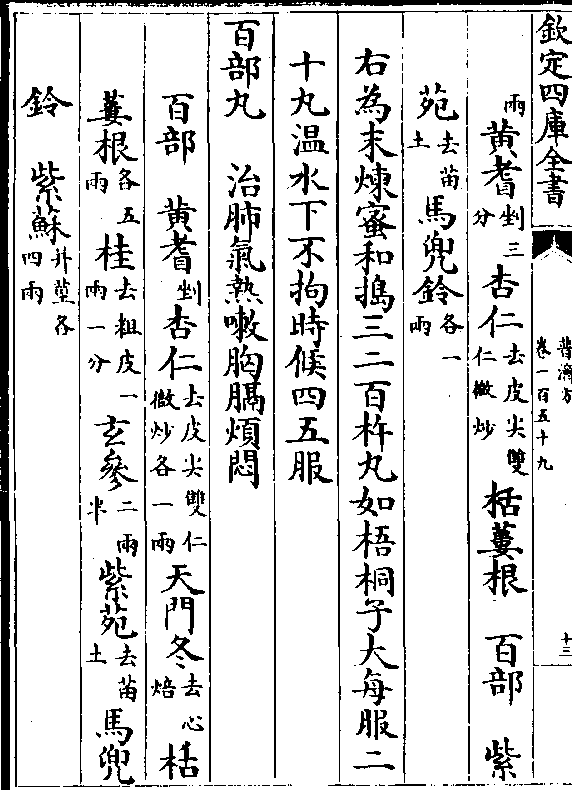 欽定四庫全書
普濟方
卷一百五十九
十三
兩黄耆剉三分杏仁去皮尖雙仁微炒栝蔞根 百部 紫
菀去苗土馬兜鈴各一兩
右為末煉蜜和搗三二百杵丸如梧桐子大每服二
十丸温水下不拘時候四五服
百部丸 治肺氣熱嗽胸膈煩悶
百部 黄耆剉杏仁去皮尖雙仁微炒各一兩天門冬去心焙栝
蔞根各五兩桂去粗皮一兩一分玄參二兩半紫菀去苗土馬兜
鈴 紫蘇并莖各四兩